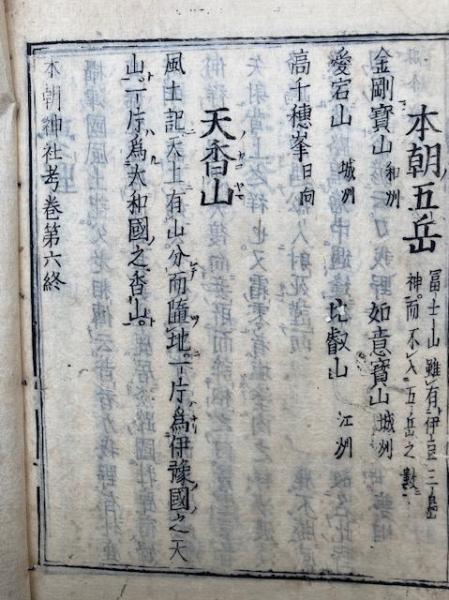 本朝五岳 冨士山雖有伊豆三島
神而不入五岳之數
金剛寶山 和州 如意寶山 城州
愛宕山 城州 比叡山 江州
高千穂峯 日向
天香山
風土記天上有山分而墮地一片爲伊豫國之天
山一片爲大和國之香山
本朝神社考卷第六終